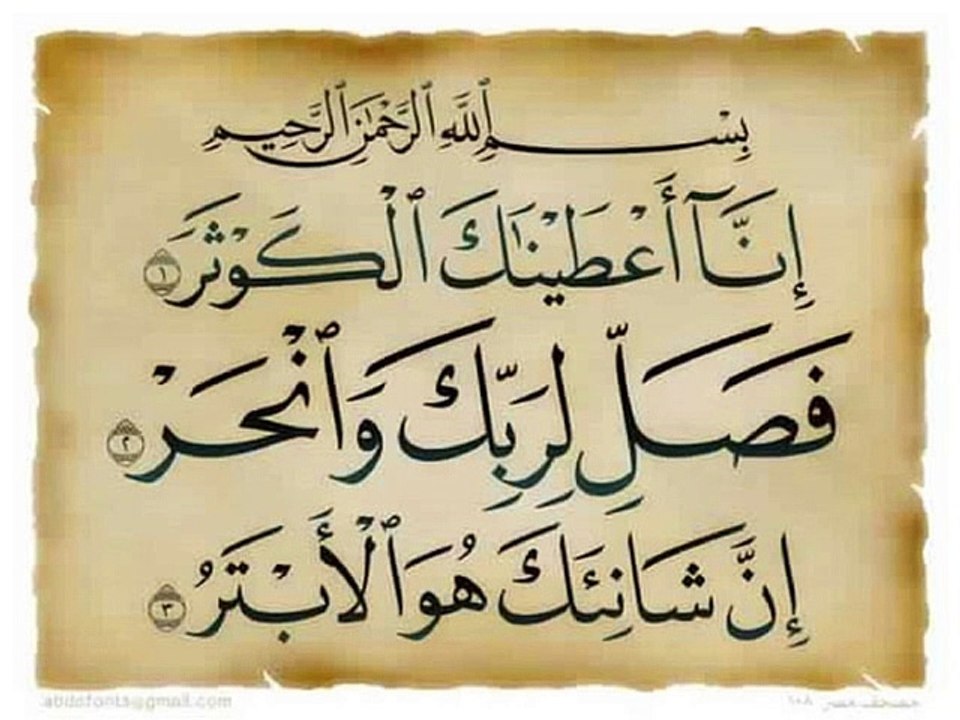 بِسْمِ ٱللَّهِ ٱلرَّحْمَٰنِ ٱلرَّحِيمِ
إِنَّآ أَعْطَيْنَٰكَ ٱلْكَوْثَرَ ١
فَصَلِّ لِرَبِّكَ وَٱنْحَرْ ٢
إِنَّ شَانِئَكَ هُوَ ٱلْأَبْتَرُ ٣
abdofonts@gmail.com مصحف مصر